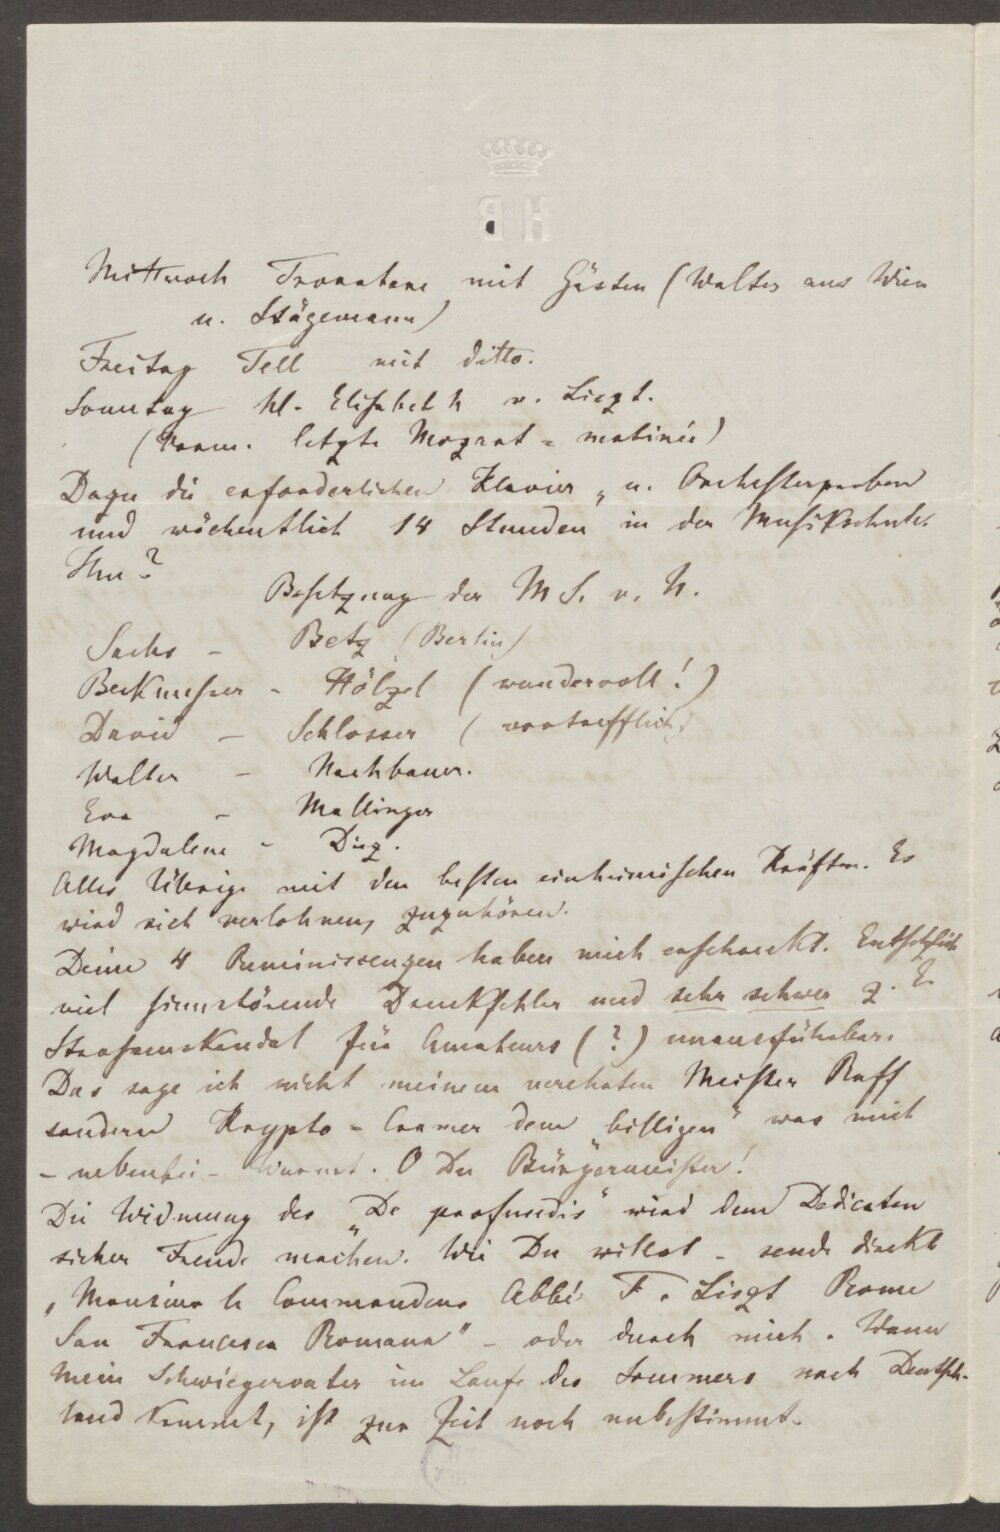 HB
Mittwoch Trovatore mit Gästen (Walter aus Wien
u. Stägemann)
Freitag Tell mit ditto.
Sonntag hl. Elisabeth v. Liszt.
(Vorm. letzte Mozart-matinée)
Dazu die erforderlichen Klavier- u. Orchesterproben
und wöchentlich 14 Stunden in der Musikschule.
Hm?
Besetzung der M S. v. N.
Sachs - Betz (Berlin)
Beckmesser - Hölzel (wundervoll!)
David - Schlosser (vortrefflich)
Walter - Nachbaur.
Eva - Mallinger
Magdalene - Diez.
Alles Übrige mit den besten einheimischen Kräften. Es
wird sich verlohnen, zuzuhören.
Deine 4 Reminiscenzen haben mich erschreckt. Entsetzlich
viel sinnstörende Druckfehler und sehr schwer z. B.
Strassenskandal für Amateurs (?) unausführbar.
Das sage ich nicht meinem verehrten Meister Raff
sondern Krypto-Cramer dem „billigen“ was mich
- nebenbei - wurmt. O Du Bürgermeister!
Die Widmung des „De profundis“ wird dem Dedicaten
sicher Freude machen. Wie Du willst - sende direkt
„Monsieur le Commandeur Abbé F. Liszt Rome
San Francesca Romana“ - oder durch mich. Wann
mein Schwiegervater im Laufe des Sommers nach Deutsch-
land kommt, ist zur Zeit noch unbestimmt.